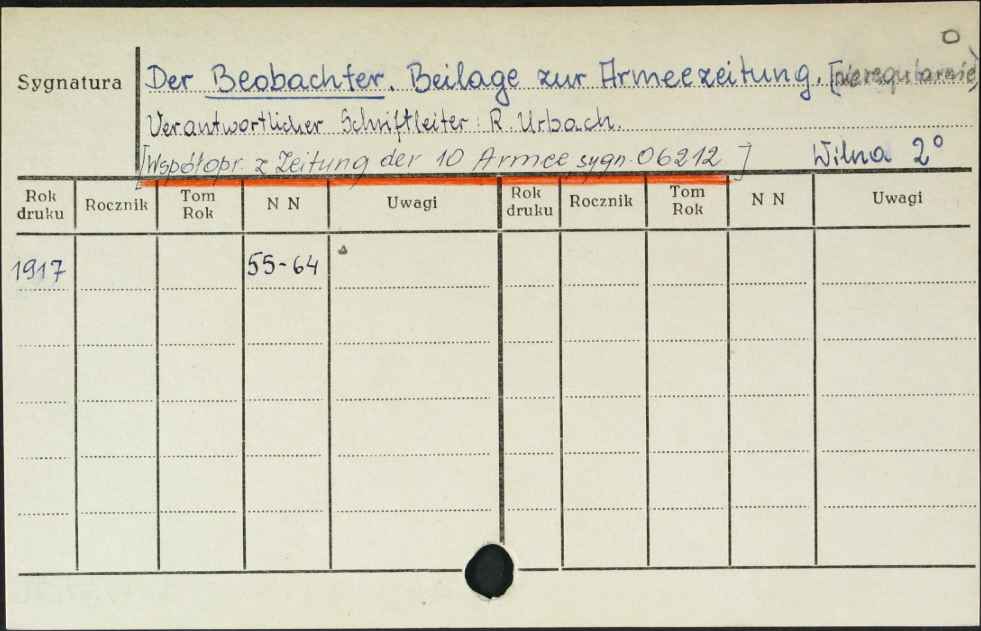 O
Sygnatura Der Beobachter. Beilage zur Armeezeitung. [nieregularnie]
Verantwortlicher Schriftleiter: R. Urbach.
[Współopr. z Zeitung der 10 Armee sygn. 06212] Wilna 2°
Rok druku Rocznik Tom Rok N N Uwagi Rok druku Rocznik Tom Rok N N Uwagi
1917 55-64